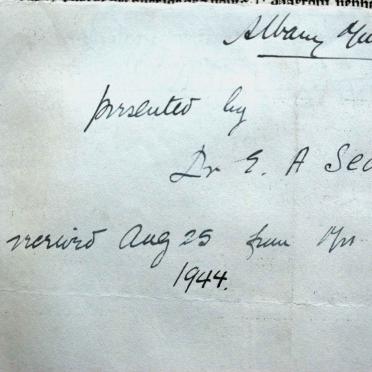 Albany
presented by
Dr E. A
received Aug 25 from Mr.
1944.